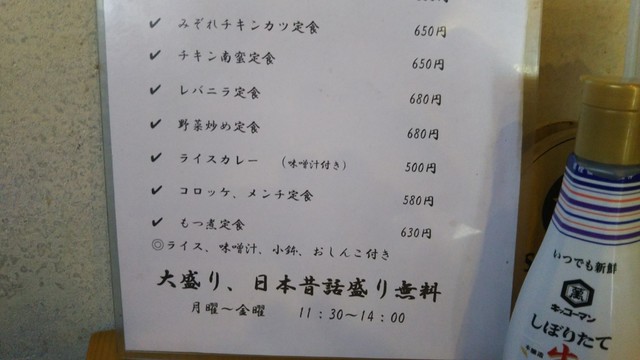 ✔ みぞれチキンカツ定食 650円
✔ チキン南蛮定食 650円
✔ レバニラ定食 680円
✔ 野菜炒め定食 680円
✔ ライスカレー (味噌汁付き) 500円
✔ コロッケ、メンチ定食 580円
✔ もつ煮定食 630円
◎ライス、味噌汁、小鉢、おしんこ付き
大盛り、日本昔話盛り無料
月曜～金曜 11:30～14:00
いつでも新鮮
キッコーマン
しぼりたて
生